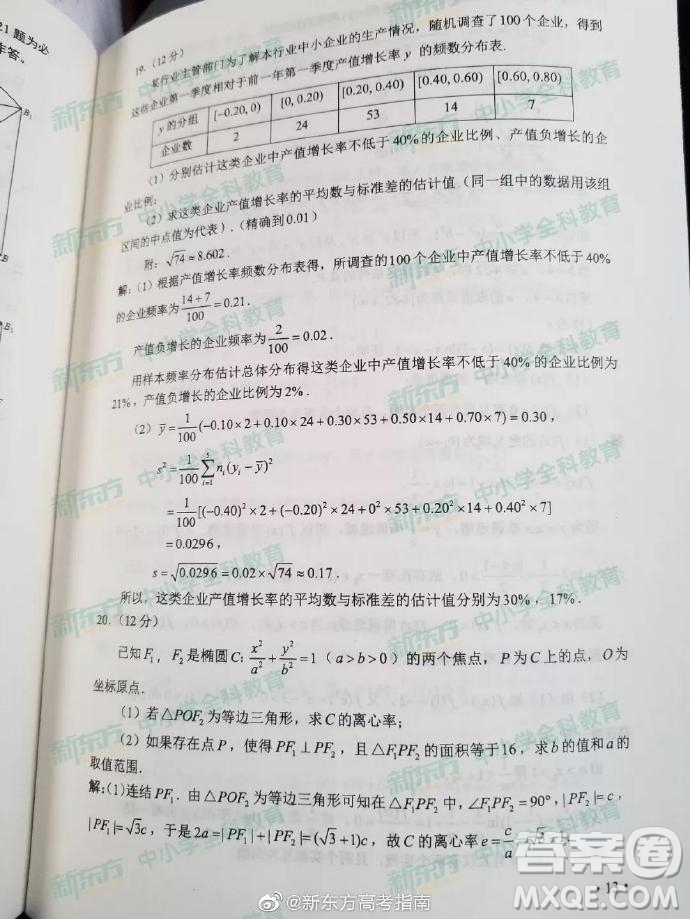 21 题为必
作答。
19.(12 分)
某行业主管部门为了解本行业中小企业的生产情况，随机调查了100 个企业，得到
这些企业第一季度相对于前一年第一季度产值增长率 y 的频数分布表.
y 的分组 [-0.20, 0) [0, 0.20) [0.20, 0.40) [0.40, 0.60) [0.60, 0.80)
企业数 2 24 53 14 7
(1) 分别估计这类企业中产值增长率不低于 40% 的企业比例、产值负增长的企
业比例;
(2) 求这类企业产值增长率的平均数与标准差的估计值 (同一组中的数据用该组
区间的中点值为代表) . (精确到 0.01)
附: √74 ≈ 8.602 .
解: (1) 根据产值增长率频数分布表得，所调查的100 个企业中产值增长率不低于 40%
的企业频率为 (14+7)/100 = 0.21.
产值负增长的企业频率为 2/100 = 0.02 .
用样本频率分布估计总体分布得这类企业中产值增长率不低于 40% 的企业比例为
21%，产值负增长的企业比例为 2% .
(2) ȳ = 1/100(-0.10×2+0.10×24+0.30×53+0.50×14+0.70×7) = 0.30，
s² = 1/100 ∑_{i=1}^{5} nᵢ(yᵢ-ȳ)²
= 1/100[(-0.40)²×2+(-0.20)²×24+0²×53+0.20²×14+0.40²×7]
= 0.0296，
s = √0.0296 = 0.02×√74 ≈ 0.17 .
所以，这类企业产值增长率的平均数与标准差的估计值分别为 30%，17% .
20.(12 分)
已知 F₁，F₂ 是椭圆 C: x²/a² + y²/b² = 1 (a>b>0) 的两个焦点，P 为 C 上的点，O 为
坐标原点.
(1) 若 △POF₂ 为等边三角形，求 C 的离心率;
(2) 如果存在点 P，使得 PF₁ ⊥ PF₂，且 △F₁PF₂ 的面积等于 16，求 b 的值和 a 的
取值范围.
解: (1) 连结 PF₁ . 由 △POF₂ 为等边三角形可知在 △F₁PF₂ 中，∠F₁PF₂ = 90°，|PF₂| = c，
|PF₁| = √3c，于是 2a = |PF₁|+|PF₂| = (√3+1)c，故 C 的离心率 e = c/a = √3-1.
· 13 ·
B₁
B
B₁
新东方 中小学全科教育
@新东方高考指南
答案圈
MXQE.COM